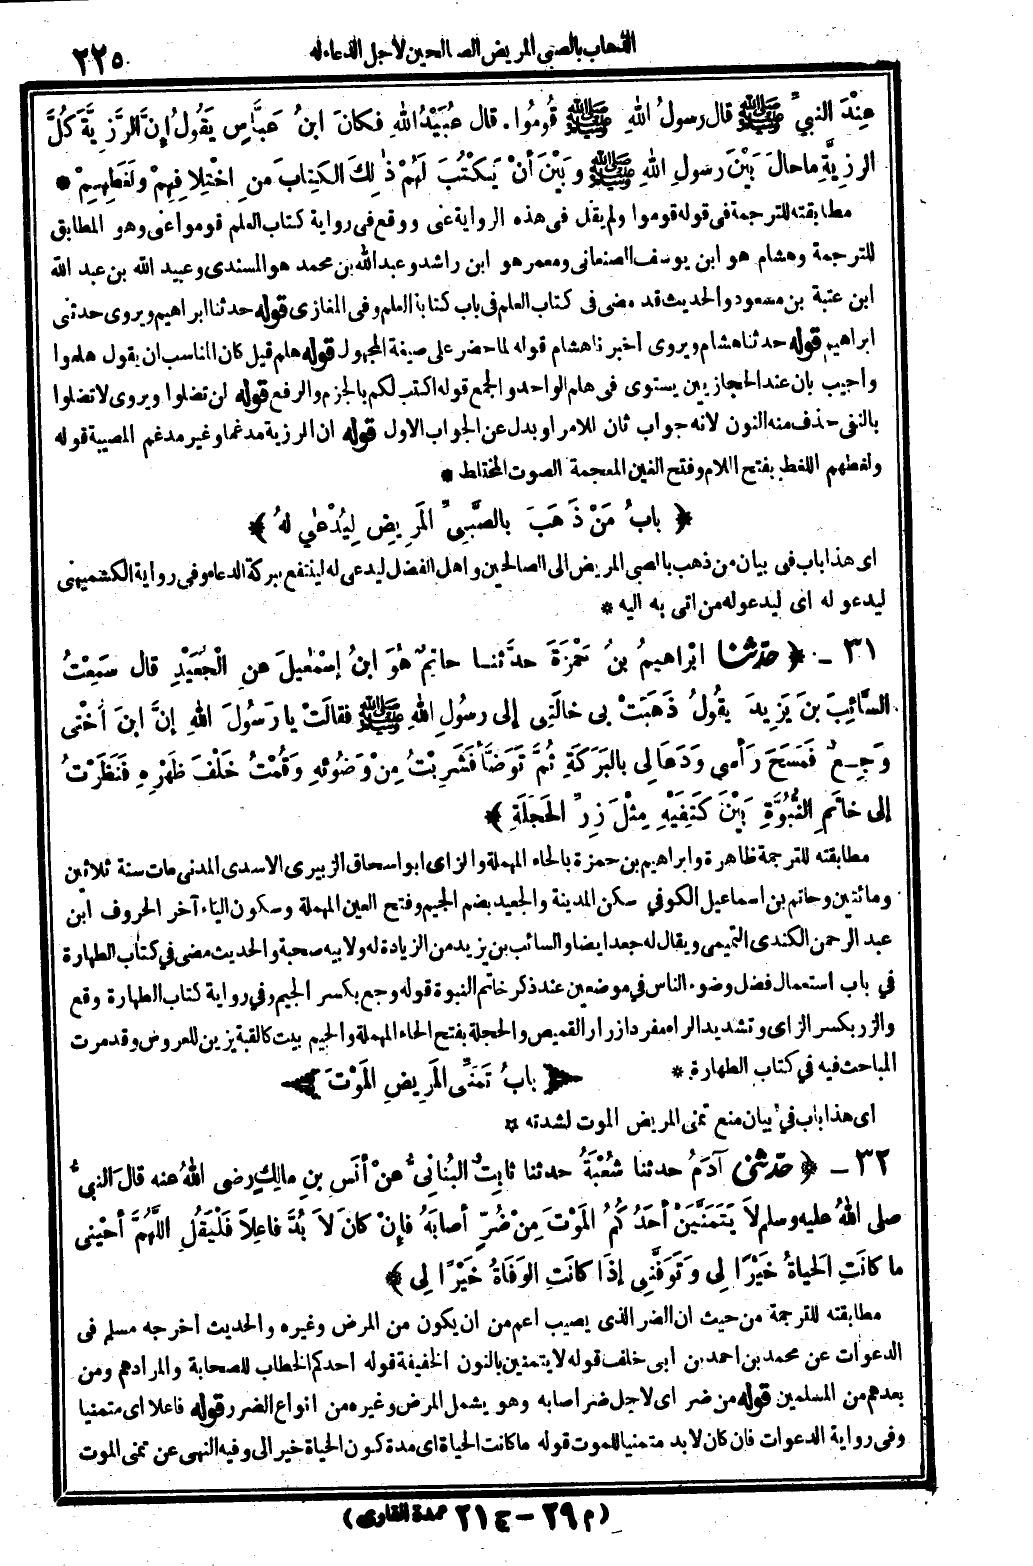 ٢٢٥ الذهاب بالصبي المريض الصالحين لأجل الدعاء له
عِنْدَ النبيِّ ﷺ قال رسولُ اللهِ ﷺ قُومُوا . قال عُبَيْدُ اللهِ فكانَ ابنُ عبَّاسٍ يَقُولُ إنَّ الرَّزِيَّةَ كلَّ
الرزيَّةِ ما حالَ بَيْنَ رسولِ اللهِ ﷺ وبَيْنَ أنْ يَكْتُبَ لَهُمْ ذٰلِكَ الكِتابَ مَنِ اخْتِلافِهِمْ ولَغَطِهِمْ *
مطابقته للترجمة فى قوله قوموا ولم يقل فى هذه الرواية عنى ووقع فى رواية كتاب العلم قوموا عنى وهو المطابق
للترجمة وهشام هو ابن يوسف الصنعانى ومعمر هو ابن راشد وعبد الله بن محمد هو المسندى وعبيد الله بن عبد الله
ابن عتبة بن مسعود والحديث قد مضى فى كتاب العلم فى باب كتابة العلم وفى المغازى قوله حدثنا ابراهيم ويروى حدثنى
ابراهيم قوله حدثنا هشام ويروى أخبرنا هشام قوله لما حضر على صيغة المجهول قوله هلم قيل كان المناسب ان يقول هلموا
وأجيب بان عند الحجازيين يستوى فى هلم الواحد والجمع قوله اكتب لكم بالجزم والرفع قوله لن تضلوا ويروى لاتضلوا
بالنفى حذف منه النون لانه جواب ثان للامر او بدل عن الجواب الاول قوله ان الرزية مدغما وغير مدغم المصيبة قوله
ولغطهم اللغط بفتح اللام وفتح الغين المعجمة الصوت المختلط *
﴿ بابُ مَنْ ذَهَبَ بالصَّبىِّ المَرِيضِ لِيُدْعٰى لهُ ﴾
اى هذا باب فى بيان من ذهب بالصبى المريض الى الصالحين واهل الفضل ليدعى له لينتفع ببركة الدعاء وفى رواية الكشميهنى
ليدعو له اى ليدعوله من اتى به اليه *
٣١ - ﴿ حدّثنا ابْراهيمُ بنُ حَمْزَةَ حدَّثنا حاتِمٌ هُوَ ابنُ إسْمٰعيلَ عنِ الْجُعَيْدِ قال سَمِعْتُ
السَّائِبَ بنَ يَزِيدَ يقُولُ ذَهَبَتْ بى خالَتِى إلى رسُولِ اللهِ ﷺ فقالَتْ يا رَسُولَ اللهِ إنَّ ابنَ أُخْتى
وَجِعٌ فَمَسَحَ رَأسِى وَدَعا لِى بالبَرَكَةِ ثُمَّ تَوَضَّأَ فَشَرِبْتُ مِنْ وَضُوئِهِ وَقُمْتُ خَلْفَ ظَهْرِهِ فَنَظَرْتُ
إلى خاتَمِ النُّبُوَّةِ بَيْنَ كَتِفَيْهِ مِثْلَ زِرِّ الحَجَلَةِ ﴾
مطابقته للترجمة ظاهرة وابراهيم بن حمزة بالحاء المهملة والزاى ابو اسحاق الزبيرى الاسدى المدنى مات سنة ثلاثين
ومائتين وحاتم بن اسماعيل الكوفي سكن المدينة والجعيد بضم الجيم وفتح العين المهملة وسكون الياء آخر الحروف ابن
عبد الرحمن الكندى التميمى ويقال له جعد ايضا والسائب بن يزيد من الزيادة له ولابيه صحبة والحديث مضى في كتاب الطهارة
في باب استعمال فضل وضوء الناس في موضعين عند ذكر خاتم النبوة قوله وجع بكسر الجيم وفي رواية كتاب الطهارة وقع
والزر بكسر الزاى وتشديد الراء مفرد ازرار القميص والحجلة بفتح الحاء المهملة والجيم بيت كالقبة يزين للعروس وقد مرت
المباحث فيه في كتاب الطهارة *
﴿ بابُ تَمَنِّى المَرِيضِ المَوْتَ ﴾
اى هذا باب في بيان منع تمنى المريض الموت لشدته *
٣٢ - ﴿ حدّثنى آدَمُ حدثنا شُعْبَةُ حدثنا ثابِتٌ البُنانِىُّ عنْ أنَسِ بنِ مالِكٍ رضى اللهُ عنه قالَ النبىُّ
صلى اللهُ عليه وسلم لاَ يَتَمَنَّيَنَّ أحَدُكُمُ المَوْتَ مِنْ ضُرٍّ أصابَهُ فإِنْ كانَ لاَ بُدَّ فاعِلاً فَلْيَقُلِ اللَّهُمَّ أحْيِنِى
ما كانَتِ الحَياةُ خَيْرًا لِى وَتَوَفَّنِى إذَا كانَتِ الوَفَاةُ خَيْرًا لِى ﴾
مطابقته للترجمة من حيث ان الضر الذى يصيب اعم من ان يكون من المرض وغيره والحديث أخرجه مسلم فى
الدعوات عن محمد بن احمد بن ابى خلف قوله لايتمنين بالنون الخفيفة قوله احدكم الخطاب للصحابة والمراد هم ومن
بعدهم من المسلمين قوله من ضر اى لاجل ضر اصابه وهو يشمل المرض وغيره من انواع الضرر قوله فاعلا اى متمنيا
وفى رواية الدعوات فان كان لا بد متمنيا للموت قوله ما كانت الحياة اى مدة كون الحياة خير الى وفيه النهى عن تمنى الموت
(م ٢٩ - ج ٢١ عمدة القارى)